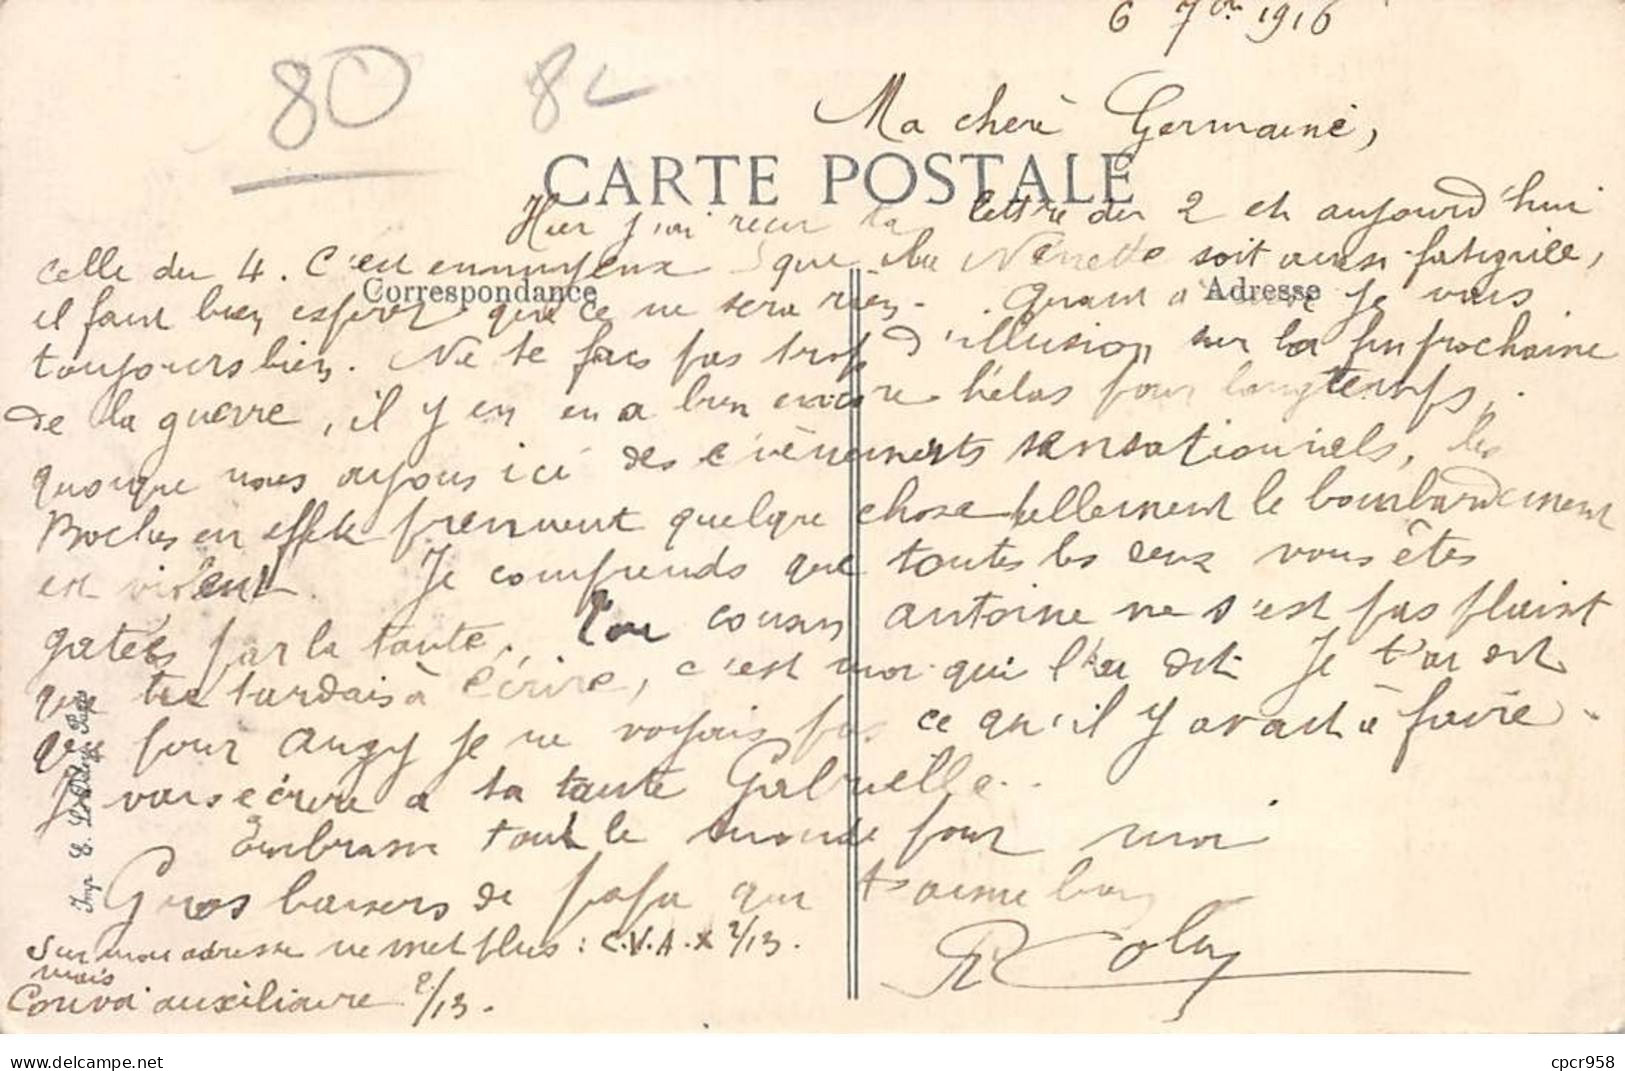 6 7bre 1916
80 8L
Ma chère Germaine,
CARTE POSTALE
Hier j'ai reçu ta lettre du 2 et aujourd'hui
celle du 4. C'est ennuyeux que Nénette soit aussi fatiguée,
Correspondance
Adresse
il faut bien espérer que ce ne sera rien. Quant à moi je vais
toujours bien. Ne te fais pas trop d'illusion sur la fin prochaine
de la guerre, il y en en a bien encore hélas pour longtemps,
quoique nous ayons ici des évènements sensationnels, les
Boches en effet prennent quelque chose tellement le bombardement
est violent. Je comprends que toutes les deux vous êtes
gatées par la tante. Ton cousin Antoine ne s'est pas plaint
que tu tardais à écrire, c'est moi qui l'ai dit. Je t'ai dit
que pour Augy je ne voyais pas ce qu'il y avait à faire.
Je vais écrire à ta tante Gabrielle..
Embrasse tout le monde pour moi
Gros baisers de papa qui t'aime bien
Sur mon adresse ne met plus : C.V.A.X 2/13.
mais
Convoi auxiliaire 2/13.
Imp. E. Paris
cpcr958